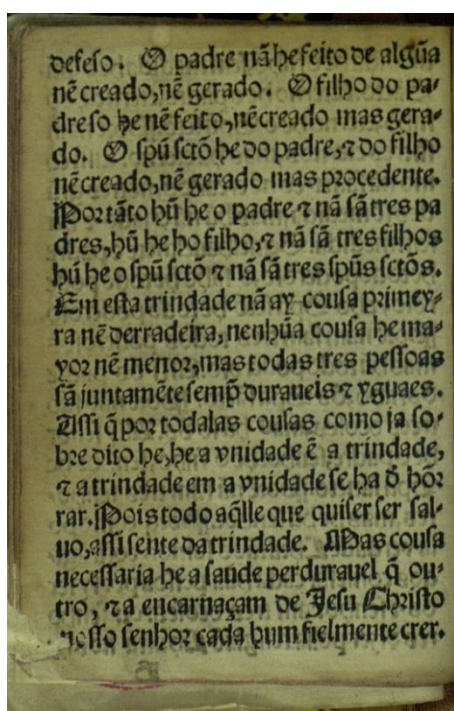 defeso. O padre nã he feito de algũa
nẽ creado, nẽ gerado. O filho do pa-
dre so he nẽ feito, nẽ creado mas gera-
do. O spũ sctõ he do padre, ⁊ do filho
nẽ creado, nẽ gerado mas procedente.
Por tãto hũ he o padre ⁊ nã sã tres pa
dres, hũ he ho filho, ⁊ nã sã tres filhos
hũ he o spũ sctõ ⁊ nã sã tres spũs sctõs.
Em esta trindade nã ay cousa primey-
ra nẽ derradeira, nenhũa cousa he ma-
yor nẽ menor, mas todas tres pessoas
sã juntamẽte semp̃ duraueis ⁊ yguaes.
Assi q̃ por todalas cousas como ja so-
bre dito he, he a vnidade ẽ a trindade,
⁊ a trindade em a vnidade se ha d̃ hõr
rar. Pois todo aq̃lle que quiser ser sal-
uo, assi sente da trindade. Mas cousa
necessaria he a saude perdurauel q̃ ou-
tro, ⁊ a encarnaçam de Jesu Christo
nosso senhor cada hum fielmente crer.